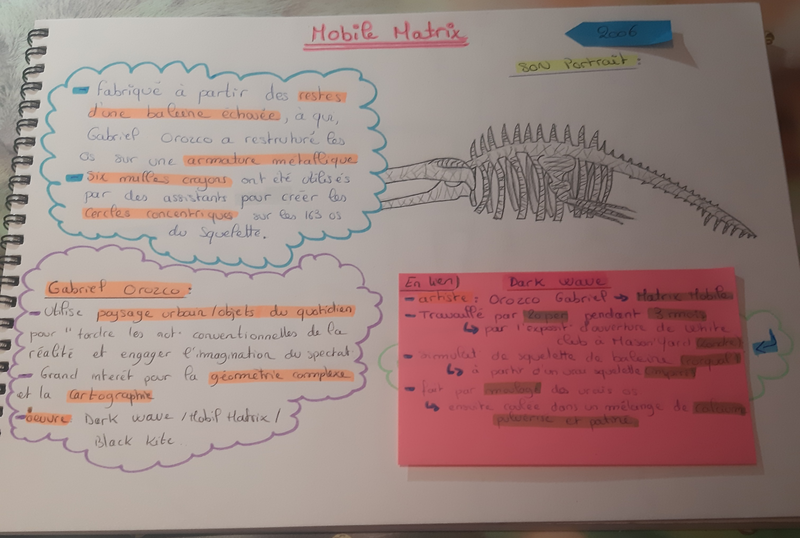 Mobile Matrix
2006
SON Portrait:
- Fabriqué à partir des restes
d'une baleine échouée, à qui,
Gabriel Orozco a restruturé les
os sur une armature métallique
- Six milles crayons ont été utilisés
par des assistants pour créer les
cercles concentriques sur les 163 os
du squelette.
Gabriel Orozco:
- Utilise paysage urbain/objets du quotidien
pour "tordre les act. conventionnelles de la
réalité et engager l'imagination du spectat.
- Grand interêt pour la géométrie complexe
et la cartographie
- œuvre Dark wave / Mobil Matrix /
Black Kite.
En lien) Dark wave
- artiste: Orozco Gabriel → Matrix Mobile
- Travaillé par 20 pers pendant 3 mois
↳ par l'exposit° d'ouverture de White
à Mason'Yard
- simulat de squelette de baleine
↳ à partir d'un vrai squelette
- fait par moulage des vrais os
↳ ensuite dans un mélange de